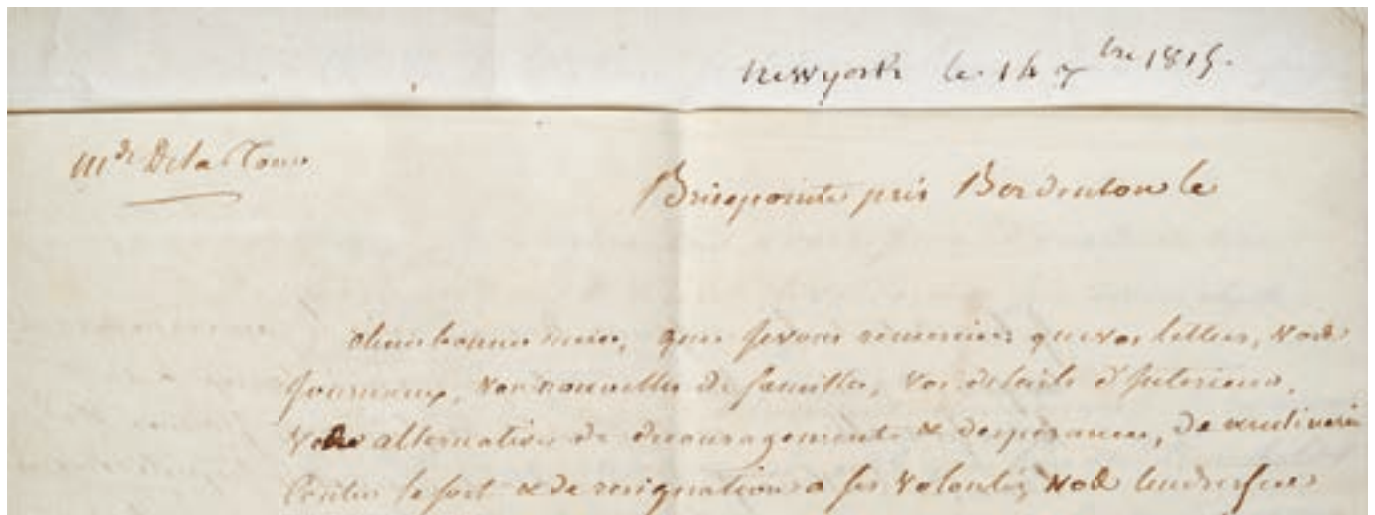 Newyork le 14 7bre 1815.
Md De la Tour
Briespointe près Bordentow le
chere bonne mere, que je vous remercie que vos lettres, vos
journaux, vos nouvelles de famille, vos details d'interieur,
alternation de decouragements & d'esperances, de
contre le sort & de resignation a ses volontés,